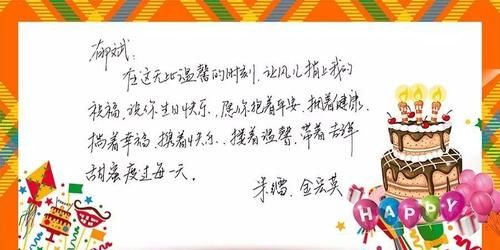 郁斌:
在这无比温馨的时刻,让风儿捎上我的
祝福,说你生日快乐,愿你抱着平安,拥着健康,
揣着幸福,携着快乐,搂着温馨,带着
甜蜜度过每一天。
金宏英
HAPPY